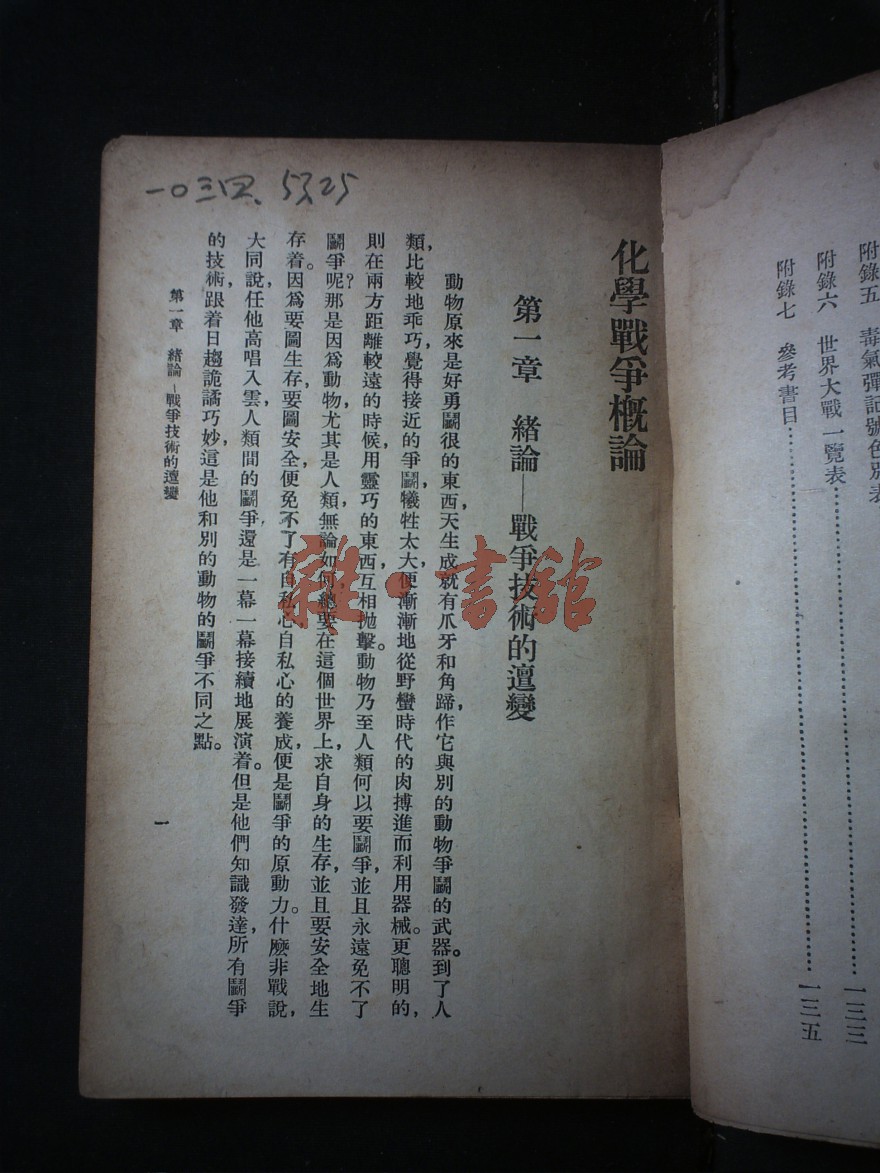 附錄五 毒氣彈記號色別表
附錄六 世界大戰一覽表……一三三
附錄七 參考書目……一三五
一〇三四、5325
化學戰爭概論
第一章 緒論——戰爭技術的邅變
動物原來是好勇鬭很的東西天生成就有爪牙和角蹄作它與別的動物爭鬭的武器。到了人
類,比較地乖巧,覺得接近的爭鬭,犧牲太大便漸漸地從野蠻時代的肉搏進而利用器械。更聰明的,
則在兩方距離較遠的時候,用靈巧的東西互相拋擊。動物乃至人類何以要鬭爭,並且永遠免不了
鬭爭呢?那是因爲動物,尤其是人類,無論如何,總要在這個世界上,求自身的生存,並且要安全地生
存着。因爲要圖生存,要圖安全,便免不了有自私心,自私心的養成,便是鬭爭的原動力。什麽非戰說,
大同說,任他高唱入雲,人類間的鬭爭還是一幕一幕接續地展演着。但是他們知識發達,所有鬭爭
的技術,跟着日趨詭譎巧妙,這是他和別的動物的鬭爭不同之點。
第一章 緒論—戰爭技術的邅變
一
雜·書館